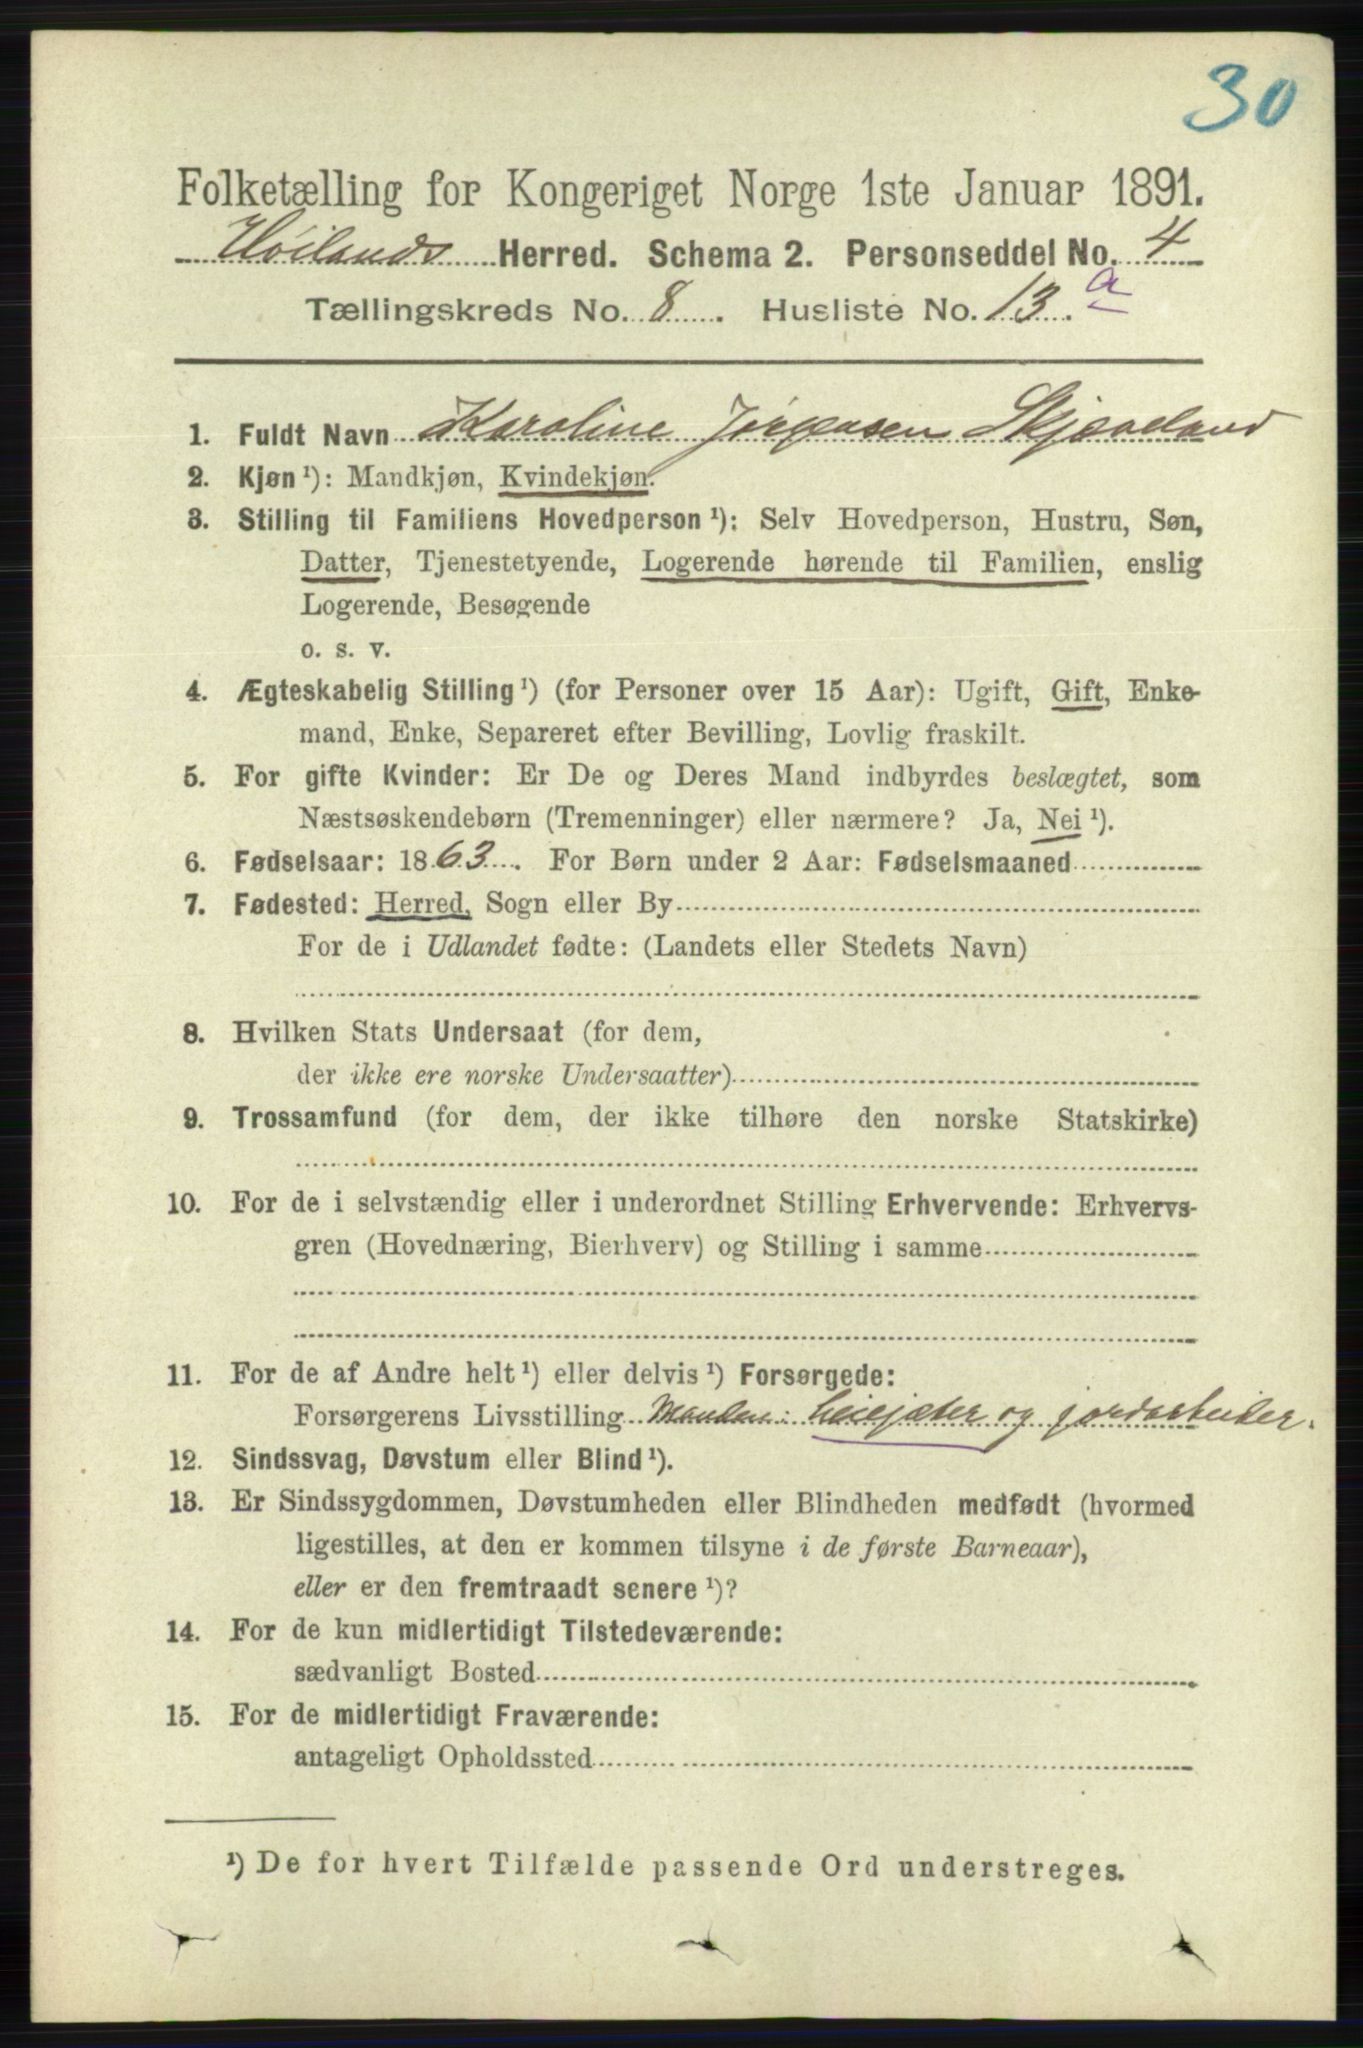 30
Folketælling for Kongeriget Norge 1ste Januar 1891.
Høilands Herred. Schema 2. Personseddel No. 4
Tællingskreds No. 8. Husliste No. 13.a
1. Fuldt Navn Karoline Jørgensen Skjæveland
2. Kjøn ¹): Mandkjøn, Kvindekjøn.
3. Stilling til Familiens Hovedperson ¹): Selv Hovedperson, Hustru, Søn,
Datter, Tjenestetyende, Logerende hørende til Familien, enslig
Logerende, Besøgende
o. s. v.
4. Ægteskabelig Stilling ¹) (for Personer over 15 Aar): Ugift, Gift, Enke-
mand, Enke, Separeret efter Bevilling, Lovlig fraskilt.
5. For gifte Kvinder: Er De og Deres Mand indbyrdes beslægtet, som
Næstsøskendebørn (Tremenninger) eller nærmere? Ja, Nei ¹).
6. Fødselsaar: 1863. For Børn under 2 Aar: Fødselsmaaned
7. Fødested: Herred, Sogn eller By
For de i Udlandet fødte: (Landets eller Stedets Navn)
8. Hvilken Stats Undersaat (for dem,
der ikke ere norske Undersaatter)
9. Trossamfund (for dem, der ikke tilhøre den norske Statskirke)
10. For de i selvstændig eller i underordnet Stilling Erhvervende: Erhvervs-
gren (Hovednæring, Bierhverv) og Stilling i samme
11. For de af Andre helt ¹) eller delvis ¹) Forsørgede:
Forsørgerens Livsstilling Manden: leiejæter og jordarbeider.
12. Sindssvag, Døvstum eller Blind ¹).
13. Er Sindssygdommen, Døvstumheden eller Blindheden medfødt (hvormed
ligestilles, at den er kommen tilsyne i de første Barneaar),
eller er den fremtraadt senere ¹)?
14. For de kun midlertidigt Tilstedeværende:
sædvanligt Bosted
15. For de midlertidigt Fraværende:
antageligt Opholdssted
¹) De for hvert Tilfælde passende Ord understreges.